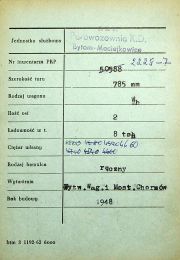 Jednostka służbowa
Parowozownia K.D.
Bytom-Maciejkowice
2228-7
Nr inwentarza PKP
50988
Szerokość toru
785 mm
Rodzaj wagonu
Ilość osi
2
Ładowność w t.
8 ton
Ciężar własny
Rodzaj hamulca
ręczny
Wytwórnia
Wytw.Wag.i Most.Chorzów
Rok budowy
1948